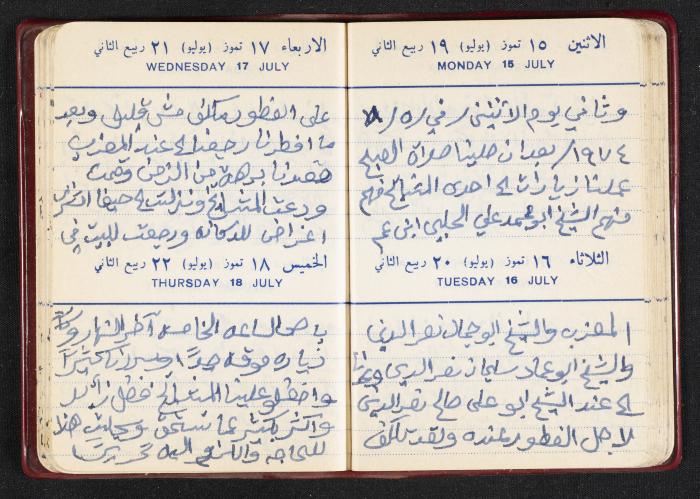 الاثنين ١٥ تموز (يوليو) ١٩ ربيع الثاني
MONDAY 15 JULY
وثاني يوم الاثنين / في ١٥ / ٧ /
١٩٧٤ / بعد ان صلينا صلاة الصبح
عملنا زيارات لاحدى المشايخ فهم
منهم الشيخ ابو محمد علي الحلبي ابن عم
الثلاثاء ١٦ تموز (يوليو) ٢٠ ربيع الثاني
TUESDAY 16 JULY
والشيخ ابو جمال نصر الدين
والشيخ ابو عماد سليمان نصر الدين
عند الشيخ ابو علي صالح نصر الدين
لاجل الفطور عنده ولقد تكلف
الاربعاء ١٧ تموز (يوليو) ٢١ ربيع الثاني
WEDNESDAY 17 JULY
على الفطور مكلف مش قليل وبعد
ما افطرنا رجعنا عند المغرب
فقعدنا برهة من الزمن وقمت
ودعت المشايخ ونزلت حيفا
اغراض للدكانه ورجعت للبيت في
الخميس ١٨ تموز (يوليو) ٢٢ ربيع الثاني
THURSDAY 18 JULY
الساعه الخامسه آخر النهار وكانت
زياره موفقه جداً وسررنا كثيراً
علينا المشايخ فضل زائد
واكثر بكثير عما نستحق هذا
للحاجه